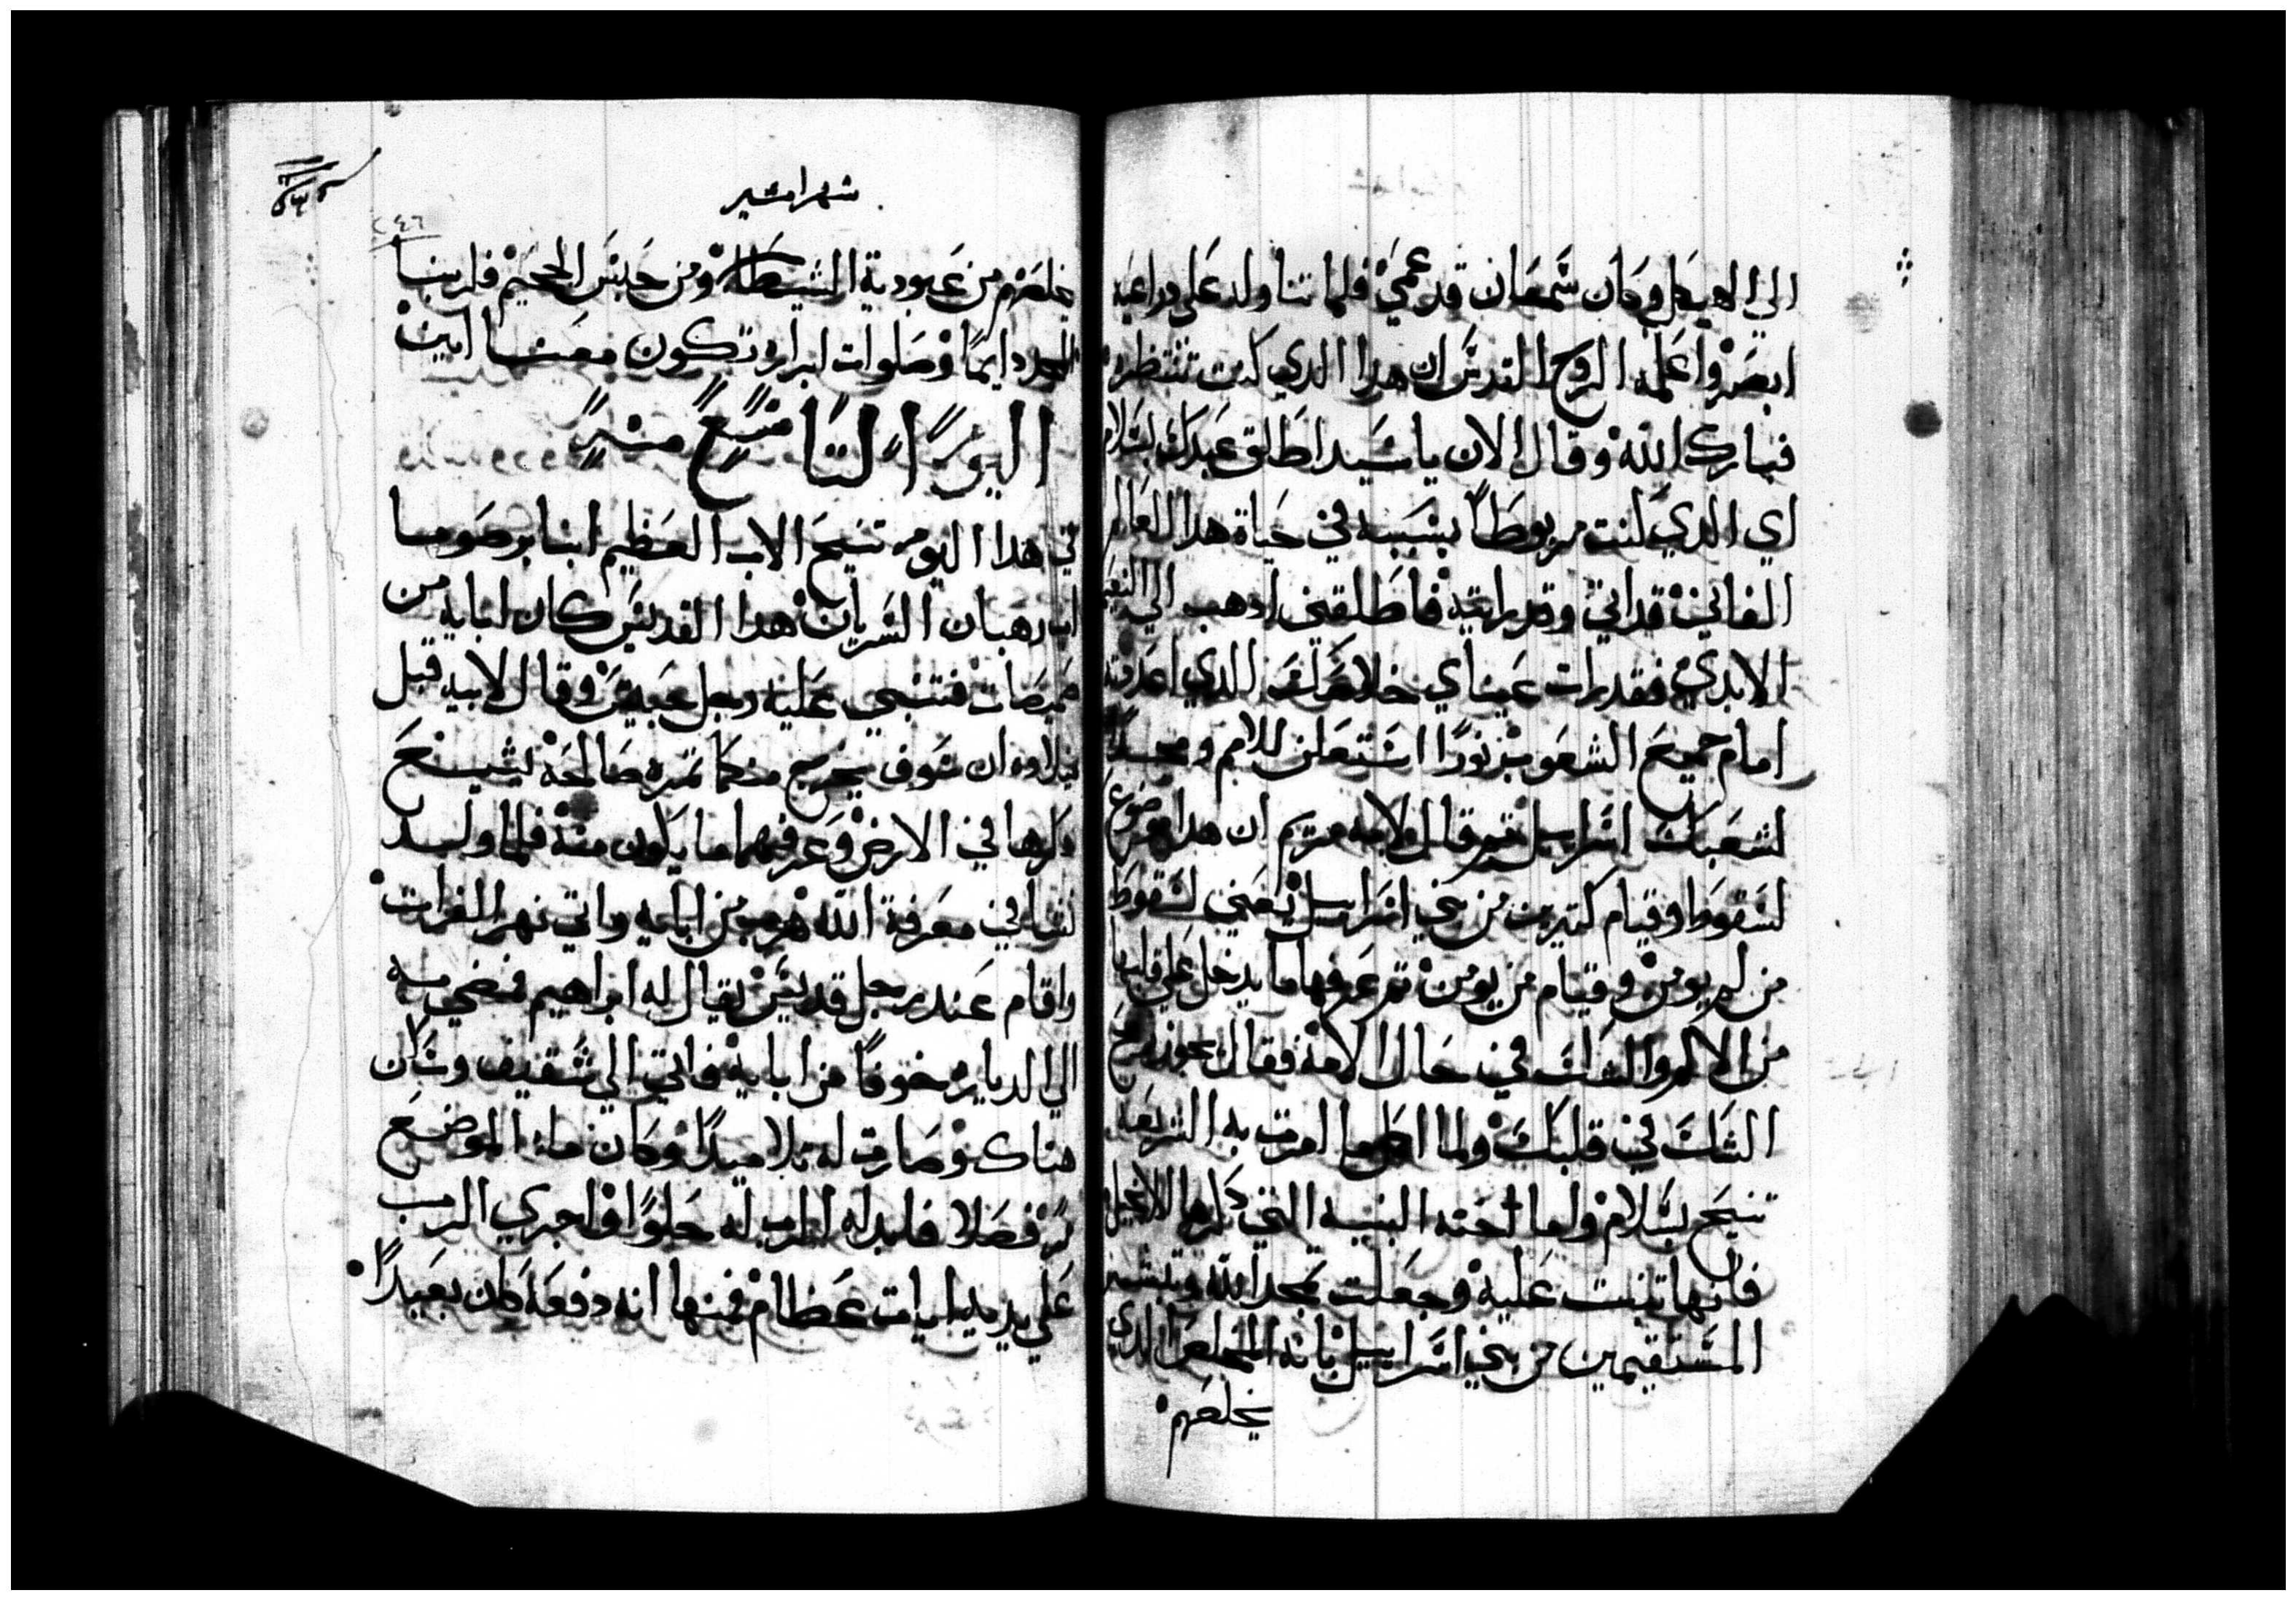 الي الهيكل وكان سمعان قد عمي فلما تناوله علي دراعيه
ابصر واعلمه الروح القدس ان هدا الدي كنت تنتظره
فبارك الله وقال الان يا سيد اطلق عبدك بسلام
اي الدي كنت مربوطا بسببه في حياة هدا العالم
الفاني قد اتي وقد رايته فاطلقني ادهب الي النعيم
الابدي فقد رات عيناي خلاصك الدي اعددته
امام جميع الشعوب نورا استعلن للامم ومجدا
لشعبك اسراييل تم قال لامه مريم ان هدا موضوع
لسقوط وقيام كتيرين من بني اسراييل يعني لسقوط
من لم يومن وقيام من يومن تم عرفها ما يدخل علي قلبها
من الالم والشك في حال الامه فقال يجوز رمح
الشك في قلبك ولما اكمل ما امرت به الشريعه
تنيح بسلام واما حنه النبيه التي دكرها الانجيل
فانها تنبت عليه وجعلت تمجد الله وتبشر
المستقيمين من بني اسراييل بانه المخلص الدي
يخلصهم
شهر امشير
٢٤٦
يخلصهم من عبودية الشيطان ومن حبس الجحيم فلربنا
المجد دايما وصلوات ابراره تكون معنا امين
اليوم التاسع من امشير
في هدا اليوم تنيح الاب العظيم انبا برصوما
اب رهبان السريان هدا القديس كان ابايه من
فتنبي عليه رجل حبيس وقال لابيه قبل
ميلاده ان سوف يخرج منكما تمره صالحه يشيع
دكرها في الارض وعرفهما ما يكون منه فلما ولد
نشا في معرفة الله هرب من ابايه واتي نهر الفرات
واقام عند رجل قديس يقال له ابراهيم فمضي منه
الي الدياره خوفا من ابايه فاتي الي شقيف وسكن
هناك وصارت له تلاميدا وكان ماء الموضع
فابدله الرب له حلوا واجري الرب
علي يديه ايات عظام فمنها انه دفعه كان بعيدا